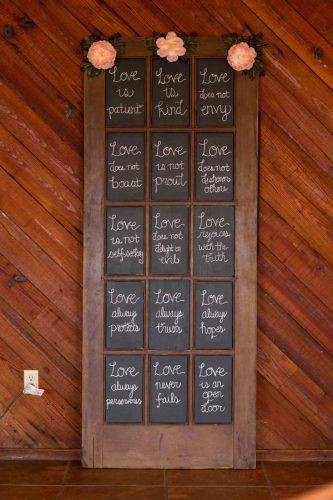 Love
is
patient
Love
is
kind
Love
does not
envy
Love
does not
boast
Love
is not
proud
Love
does not
dishonors
others
Love
is not
self-seeking
Love
does not
delight in
evil
Love
rejoices
with the
truth
Love
always
protects
Love
always
trusts
Love
always
hopes
Love
always
perseveres
Love
never
fails
Love
is an
open
door